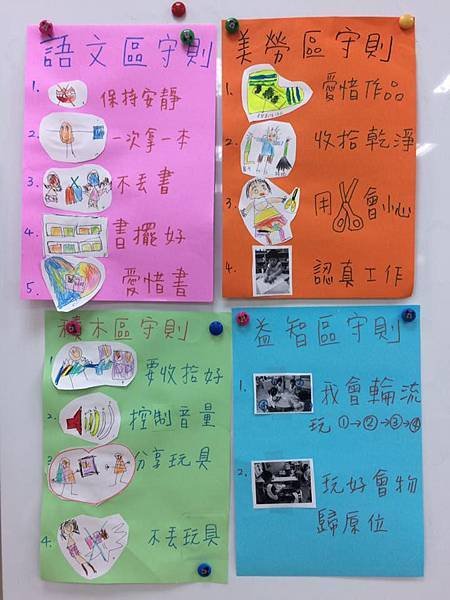 語文區守則
1. 保持安靜
2. 一次拿一本
3. 不丟書
4. 書擺好
5. 愛惜書
美勞區守則
1. 愛惜作品
2. 收拾乾淨
3. 用會小心
4. 認真工作
積木區守則
1. 要收拾好
2. 控制音量
3. 分享玩具
4. 不丟玩具
益智區守則
1. 我會輪流
玩 ①→②→③→④
2. 玩好會物
歸原位